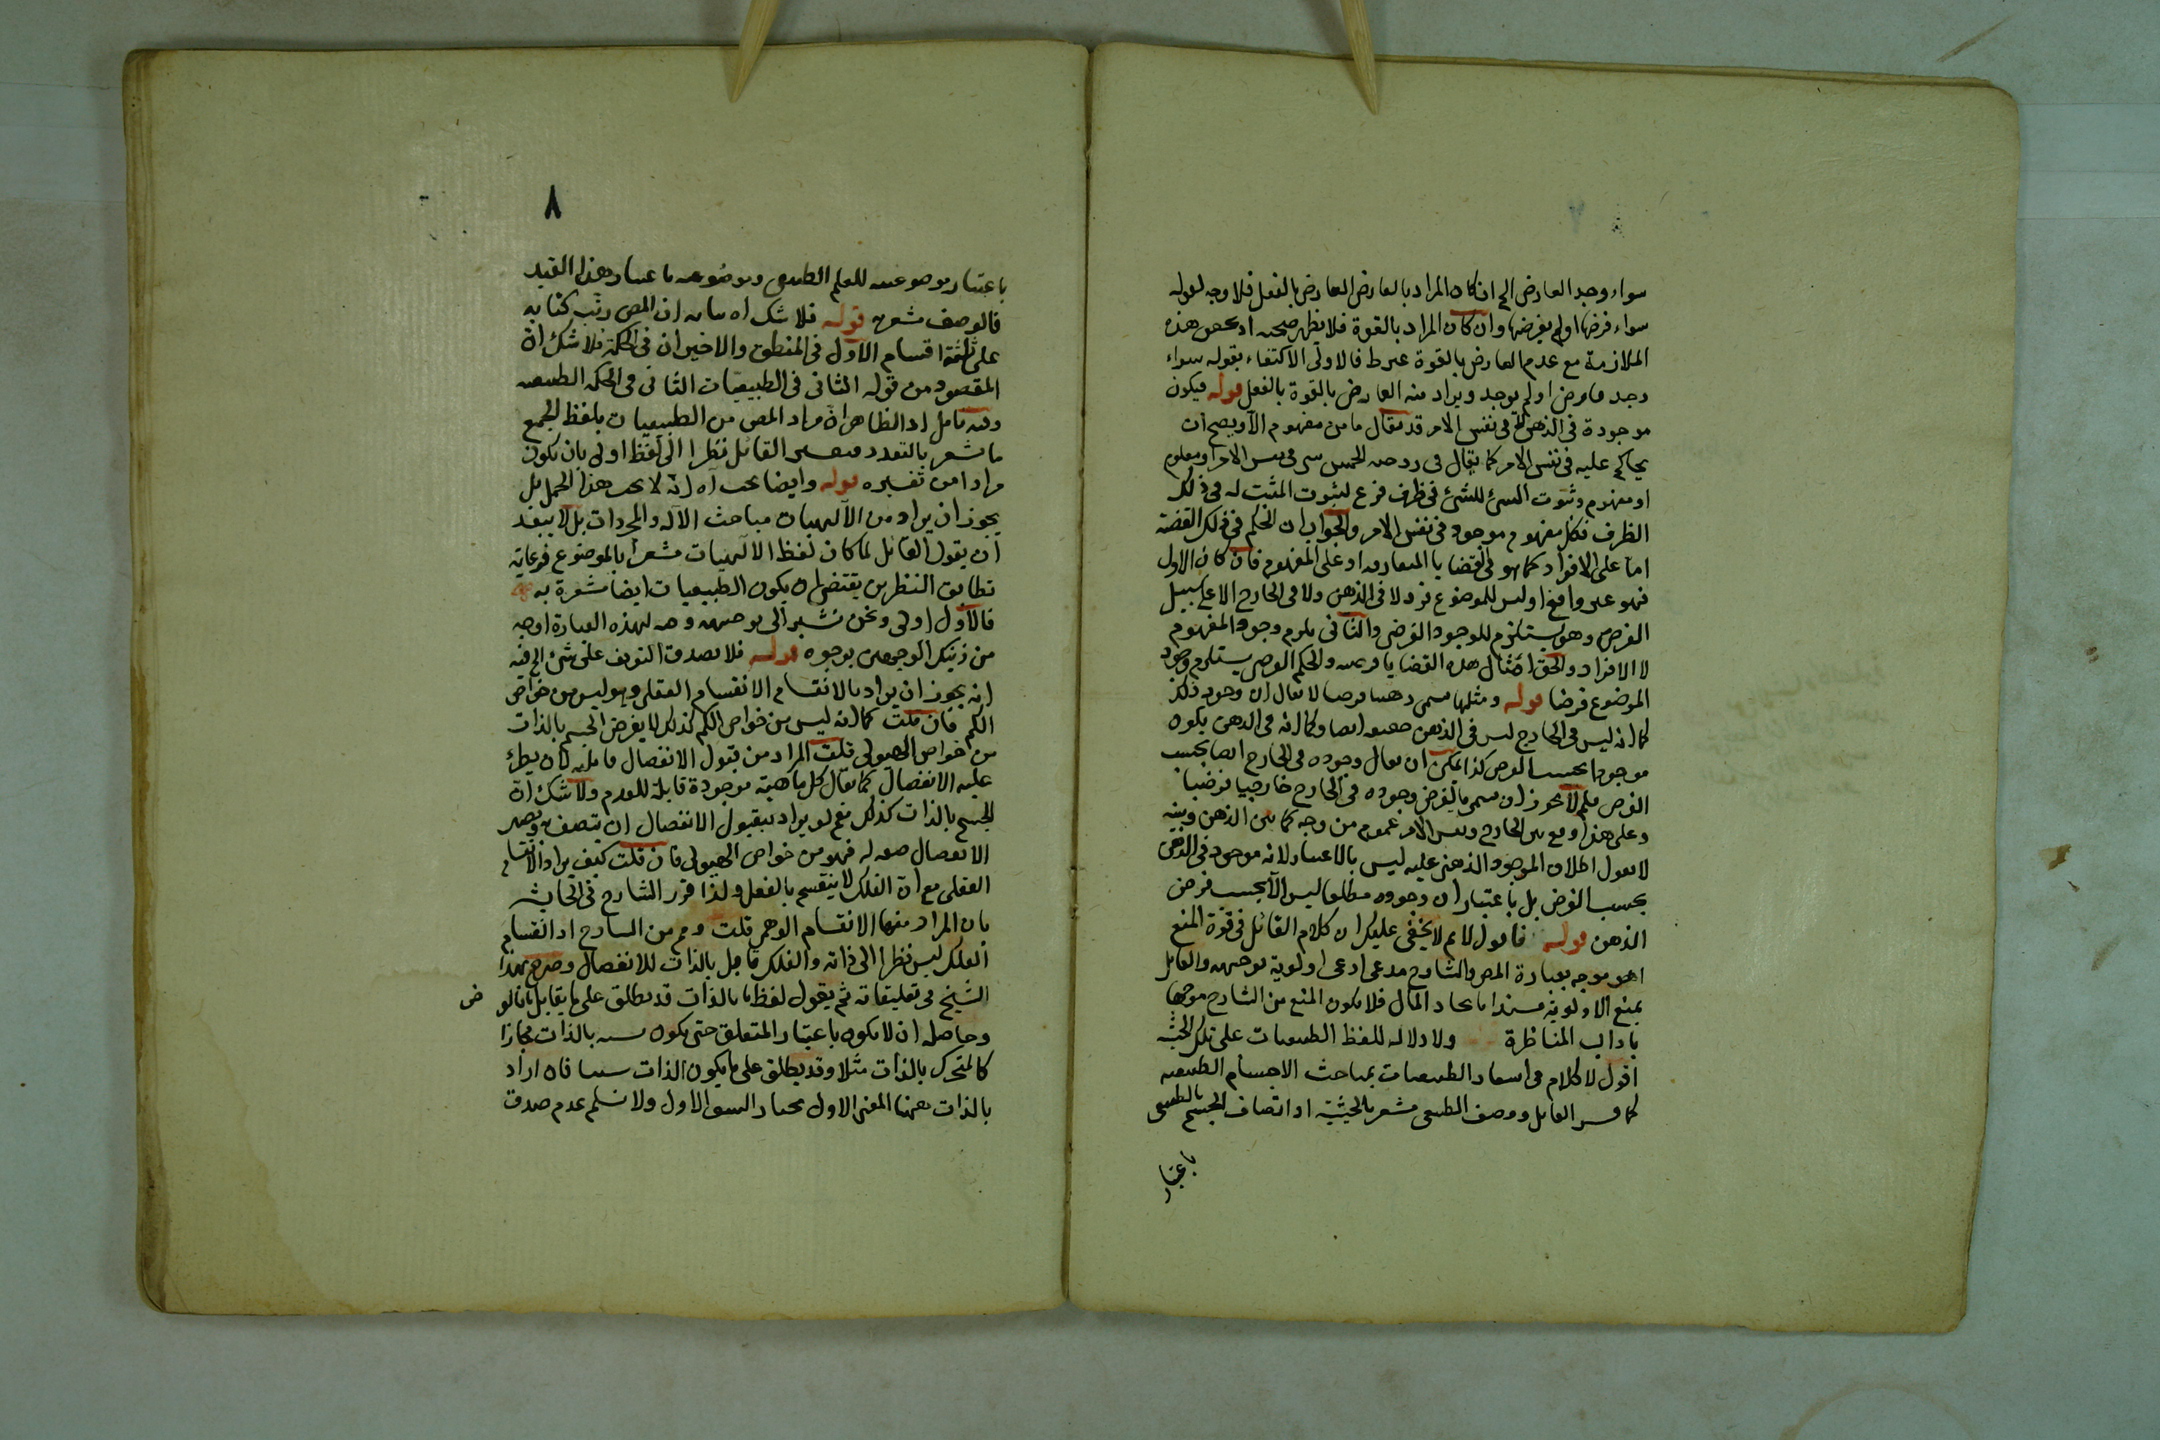 سواء وجد العارض الخ ان كان المراد بالعارض العارض بالفعل فلا وجه لقوله
سواء فرضها او لم يفرضها وان كان المراد بالقوة فلا يظهر صحته اد تحقق هذه
الملازمة مع عدم العارض بالقوة فالاولى الاكتفاء بقوله سواء
وجد فارض او لم يوجد ويراد منه العارض بالقوة بالفعل قوله فيكون
موجودة في الذهن في نفس الامر قد يقال ما من مفهوم الا ويصح ان
يحاكم عليه في نفس الامر كما يقال في نفس الامر او معلوم
او مفهوم وثبوت الشئ للشئ في ظرف فرع لثبوت المثبت له في ذلك
الظرف فكل مفهوم موجود في نفس الامر والجواب ان الحكم في ذلك القضية
اما على الافراد كما هو في القضايا المتعارفة او على المفهوم فان كان الاول
فهو غير واقع اذ ليس للموضوع فرد لا في الذهن ولا في الخارج الا على سبيل
الفرض وهو يستلزم للوجود الفرضي والثاني يلزم وجود المفهوم
لا الافراد والحق امثال هذه القضايا فرضية والحكم الفرضي يستلزم وجود
الموضوع فرضا قوله ومثلها يسمى ذهنيا فرضيا لا يقال ان وجود ذلك
كما انه ليس في الخارج ليس في الذهن حقيقة ايضا وكما انه في الذهن يكون
موجودا بحسب الفرض كذا يمكن ان يقال وجوده في الخارج ايضا بحسب
الفرض فلم لا يجوز ان يسمى بالفرض وجوده في الخارج خارجيا فرضيا
وعلى هذا وقع بين الخارج ونفس الامر عموم من وجه كما بين الذهن وبينه
لا نقول اطلاق الموجود الذهني عليه ليس بالاعتبار لانه موجود في الذهن
بحسب الفرض بل باعتبار ان وجوده مطلقا ليس الا بحسب فرض
الذهن قوله فاقول لا يخفى عليك ان كلام القائل في قوة المنع
اهو موجه بعبارة المص والشارح مدعى ادعى اولوية توجيهه والقائل
بمنع الاولوية مستندا باتحاد المال فلا يكون المنع من الشارح موجها
باداب المناظرة ولا دلالة للفظ الطبيعيات على تلك الحيثية
اقول لا كلام في اشعار الطبيعيات بمباحث الاجسام الطبيعية
كما فسر القائل ووصف الطبيعي مشعر بالحيثية اد اتصاف الجسم بالطبيعي
باعتبار
٨
باعتبار موضوعيته للعلم الطبيعي وموضوعيته باعتبار هذا القيد
فالوصف مشعر قوله فلا شك اه بيانه ان المص رتب كتابه
على ثلثة اقسام الاول في المنطق والاخيران في الحكمة فلا شك ان
المقصود من قوله الثاني في الطبيعيات الثاني في الحكمة الطبيعية
وفيه تامل اد الظاهر ان مراد المص من الطبيعيات بلفظ الجمع
ما شعر بالتعدد فتفسير القائل نظرا الى لفظ اولى بان يكون
مرادا من تفسيره قوله وايضا يجب اه انه لا يجب هذا الحمل بل
يجوز ان يراد من الآلهيات مباحث الاله والمجردات بل لا يبعد
ان يقول القائل لما كان لفظ الالهيات مشعرا بالموضوع فرعاية
تطابق النظرين يقتضي ان يكون الطبيعيات ايضا مشعرة به
فالاول اولى ونحن نشير الى توجيهه وجه لهذه العبارة اوجه
من ذينك الوجهين بوجوه قوله فلا يصدق التعريف على شئ الخ فيه
انه يجوز ان يراد بالانقسام الانقسام العقلي وهو ليس من خواص
الكم فان قلت كما انه ليس من خواص الكم كذلك لا يفرض الجسم بالذات
من خواص الهيولى قلت المراد من بقول الانفصال قابلية كان يطرئ
عليه الانفصال كما يقال كل ماهية موجودة قابلة للعدم ولا شك ان
الجسم بالذات كذلك نعم لو يراد بقبول الانفصال ان يتصف به ويصير
الانفصال صفة له فهو من خواص الهيولى فان قلت كيف يراد الانقسام
العقلي مع ان الفلك لا ينقسم بالفعل ولذا قرر الشارح في الحاشية
بان المراد منها الانقسام الوهمي قلت وهم من الشارح اد انقسام
الفلك ليس نظرا الى ذاته والفلك قابل بالذات للانفصال وصرح بهذا
الشيخ في تعليقاته ثم يقول لفظ ما بالذات قد يطلق على ما يقابل بالعر ض
وحاصله ان لا يكون باعتبار المتعلق حتى يكون نسبه بالذات مجازا
كالمتحرك بالذات مثلا وقد يطلق على ما يكون الذات سببا فان اراد
بالذات ههنا المعنى الاول نختار الشق الاول ولا نسلم عدم صدق